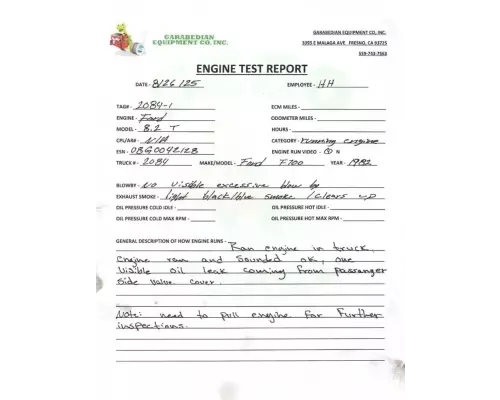 GARABEDIAN
EQUIPMENT CO. INC.
GARABEDIAN EQUIPMENT CO, INC.
3395 E MALAGA AVE. FRESNO, CA 93725
559-743-7563
ENGINE TEST REPORT
DATE - 8/26/25 EMPLOYEE - HH
TAG# - 2084-1 ECM MILES -
ENGINE - Ford ODOMETER MILES -
MODEL - 8.2 T HOURS -
CPL/AR# - N/A CATEGORY - running engine
ESN - 08G0042128 ENGINE RUN VIDEO - Y N
TRUCK # - 2084 MAKE/MODEL - Ford F700 YEAR - 1982
BLOWBY - No visible excessive blow by
EXHAUST SMOKE - light black/blue smoke /clears up
OIL PRESSURE COLD IDLE - OIL PRESSURE HOT IDLE -
OIL PRESSURE COLD MAX RPM - OIL PRESSURE HOT MAX RPM -
GENERAL DESCRIPTION OF HOW ENGINE RUNS - Ran engine in truck,
Engine ran and sounded ok, one
visible oil leak coming from passanger
side valve cover.
Note: need to pull engine for further
inspections.